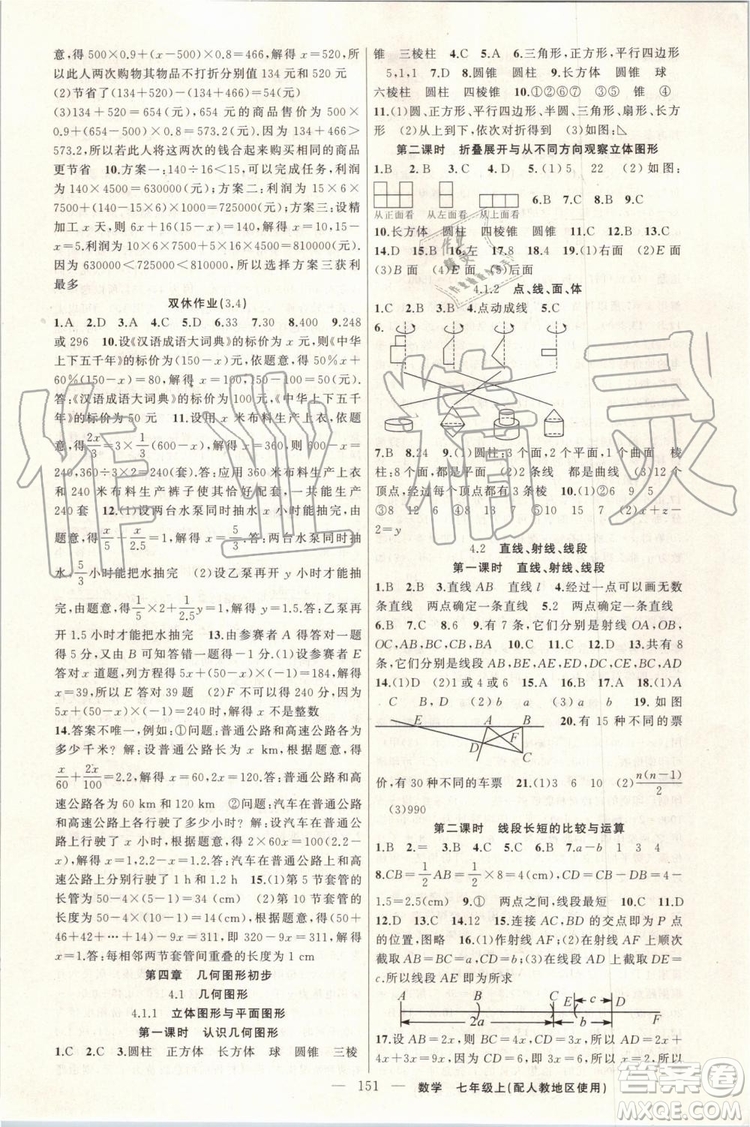 意,得500×0.9+(x-500)×0.8=466,解得x=520,所
以此人两次购物其物品不打折分别值134元和520元
(2)节省了(134+520)-(134+466)=54(元)
(3)134+520=654(元),654元的商品售价为500×
0.9+(654-500)×0.8=573.2(元).因为134+466>
573.2,所以此人将这两次的钱合起来购买相同的商品
更节省 10.方案一:140÷16<15,可以完成任务,利润
为140×4500=630000(元);方案二:利润为15×6×
7500+(140-15×6)×1000=725000(元);方案三:设精
加工x天,则6x+16(15-x)=140,解得x=10,利润为
10×6×7500+(15-10)×16×4500=810000(元).因
为630000<725000<810000,所以选择方案三获利
最多
双休作业(3.4)
1.A 2.D 3.A 4.D 5.C 6.33 7.30 8.400 9.248
或296 10.设《汉语成语大词典》的标价为x元,则《中华
上下五千年》的标价为(150-x)元,依题意,得50%x+
60%(150-x)=80,解得x=100,150-100=50(元).
答:《汉语成语大词典》的标价为100元,《中华上下五千
年》的标价为50元 11.设用x米布料生产上衣,依题
意,得2x/3=3×1/3(600-x),解得x=360,600-x=
240,360÷3×2=240(套).答:应用360米布料生产上衣,
240米布料生产裤子使其恰好配套,一共能生产
240套 12.(1)设两台水泵同时抽水x小时能把水抽
完,得x/5+x/2.5=1,解得x=5/3.答:两台水泵同时抽
水,5/3小时能把水抽完 (2)设乙泵再开x小时才能抽
完,得1/5×2+x/2.5=1,解得x=1.5.答:乙泵再
开1.5小时才能把水抽完 13.(1)由参赛者A答对20题
得5分,又由B可知答错一题扣1分 (2)设参赛者E答对
x道题,列方程得5x+(50-x)×(-1)=184,解
得x=39.答:E答对39题 (2)F不可能得240分,因为
5x+(50-x)×(-1)=240,解得x不是整数
14.答案不唯一,例如:①问题:普通公路和高速公路各为
多少千米?解:设普通公路长为x km,根据题意,得
x/60+2x/100=2.2,解得x=60,2x=120.答:普通公路和高
速公路各为60 km和120 km ②问题:汽车在普通公路
和高速公路上各行驶了多少小时?解:设汽车在普通公
路上行驶了x小时,根据题意,得2×60x=100(2.2-
x),解得x=1,2.2-x=1.2.答:汽车在普通公路和高
速公路上分别行驶了1 h和1.2 h 15.(1)第5节套管
的长度为50-4×(5-1)=34(cm) (2)(50+
46+42+…+14)-9x=311,即320-9x=311,解得x=
1.答:每相邻两节套管间重叠的长度为1 cm
第四章 几何图形初步
4.1 几何图形
4.1.1 立体图形与平面图形
第一课时 认识几何图形
1.C 2.C 3.圆柱 正方体 长方体 球 圆锥 三棱
锥 三棱柱 4.C 5.A 6.三角形,正方形,平行四边形
5,1,1 7.D 8.圆锥 圆柱 9.①长方体 圆锥 球
六棱柱 圆柱 四棱锥 10.①②⑤⑦⑧ 柱 ⑥ 锥 ④
11.(1)圆、正方形、平行四边形、半圆、三角形、扇形、长方
形 (2)从上到下,依次对折得到 (3)如图:
第二课时 折叠展开与从不同方向观察立体图形
1.B 2.B 3.D 4.A 5. 6.B 7.B 8.C 9.C
从正面看 从左面看 从上面看
10.长方体 圆柱 四棱锥 圆锥 11.③ 12.C 13.C
14.D 15.B 16.左 17.8 18.4 19.(1)F面 (2)E面
(3)B面 (4)E面 (5)后面
4.1.2 点、线、面、体
1.C 2.B 3.B 4.点动成线 5.C
6.
7.B 8.B 9.(1)圆柱:3个面,2个平面,1个曲面 棱
柱:8个面,都是平面 (2)2条线 都是曲线 (3)12个
顶点,经过每个顶点都有3条棱 10.(1)①② 6 9
③8 12 ④7 15 (2)n+2 2n 3n (3)x+z
-2=y
4.2 直线、射线、线段
第一课时 直线、射线、线段
1.C 2.B 3.直线AB 直线l 4.经过一点可以画无数
条直线 两点确定一条直线 5.2 两点确定一条直线
6.D 7.C 8.6 9.有7条,它们分别是射线OA,OB,
AC,AF,BC,BF,CF 10.C 11.B 12.D 13.共有8
条线段,它们分别是线段AB,BE,AE,ED,DF,EF,FC,DC
14.(1)1 (2)1或4 15.2 16.B 17.B 18.(1)A
a C (2)b a (3)a b 19.如图
E A B D F C 20.有15种不同的票
价,有30种不同的车票 21.(1)3 6 10 (2)n(n-1)/2
(3)990
第二课时 线段长短的比较与运算
1.C 2.B 3.A 4.C 5.B 6.B 7.a-b 1 3 4
8.CB=1/2 AB=1/2×8=4(cm),CD=4-2.5=
1.5=2.5(cm) 9.① 两点之间,线段最短 10.C 11.D
12.D 13.D 14.1.5 12 15.连接AC,BD,交点为P点
的位置,图略 16.(1)作射线AF;(2)在射线AF上顺次
截取AB=BC=a;(3)在射线CF上截取CD=b;(4)在线段DA上截取
DE=c,所以线段AE即为所求
A B C E D c 2a b
17.设AB=2x,则BC=4x,CD=3x,所以AD=2x+
4x+3x=9x.因为CD=3x=6,所以x=2,所以BC=
151 数学 七年级上(配人教地区使用)
作业精灵
答案圈
MXQE.COM